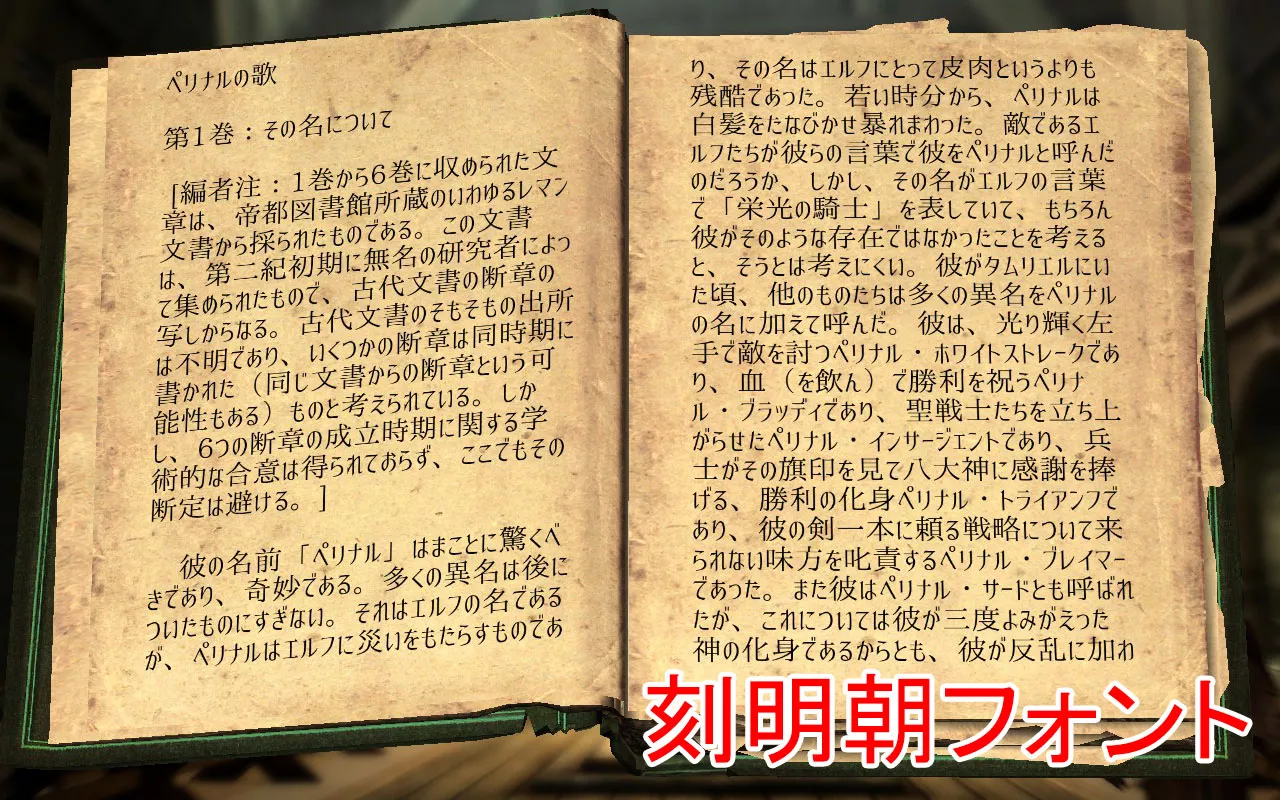 ペリナルの歌
第1巻：その名について
[編者注：1巻から6巻に収められた文
章は、帝都図書館所蔵のいわゆるレマン
文書から採られたものである。この文書
は、第二紀初期に無名の研究者によっ
て集められたもので、古代文書の断章の
写しからなる。古代文書のそもそもの出所
は不明であり、いくつかの断章は同時期に
書かれた（同じ文書からの断章という可
能性もある）ものと考えられている。しか
し、6つの断章の成立時期に関する学
術的な合意は得られておらず、ここでもその
断定は避ける。]
彼の名前「ペリナル」はまことに驚くべ
きであり、奇妙である。多くの異名は後に
ついたものにすぎない。それはエルフの名である
が、ペリナルはエルフに災いをもたらすものであ
り、その名はエルフにとって皮肉というよりも
残酷であった。若い時分から、ペリナルは
白髪をたなびかせ暴れまわった。敵であるエ
ルフたちが彼らの言葉で彼をペリナルと呼んだ
のだろうか、しかし、その名がエルフの言葉
で「栄光の騎士」を表していて、もちろん
彼がそのような存在ではなかったことを考える
と、そうとは考えにくい。彼がタムリエルにい
た頃、他のものたちは多くの異名をペリナル
の名に加えて呼んだ。彼は、光り輝く左
手で敵を討つペリナル・ホワイトストレークであ
り、血（を飲ん）で勝利を祝うペリナ
ル・ブラッディであり、聖戦士たちを立ち上
がらせたペリナル・インサージェントであり、兵
士がその旗印を見て八大神に感謝を捧
げる、勝利の化身ペリナル・トライアンフで
あり、彼の剣一本に頼る戦略について来
られない味方を叱責するペリナル・ブレイマー
であった。また彼はペリナル・サードとも呼ばれ
たが、これについては彼が三度よみがえった
神の化身であるからとも、彼が反乱に加わ
刻明朝フォント